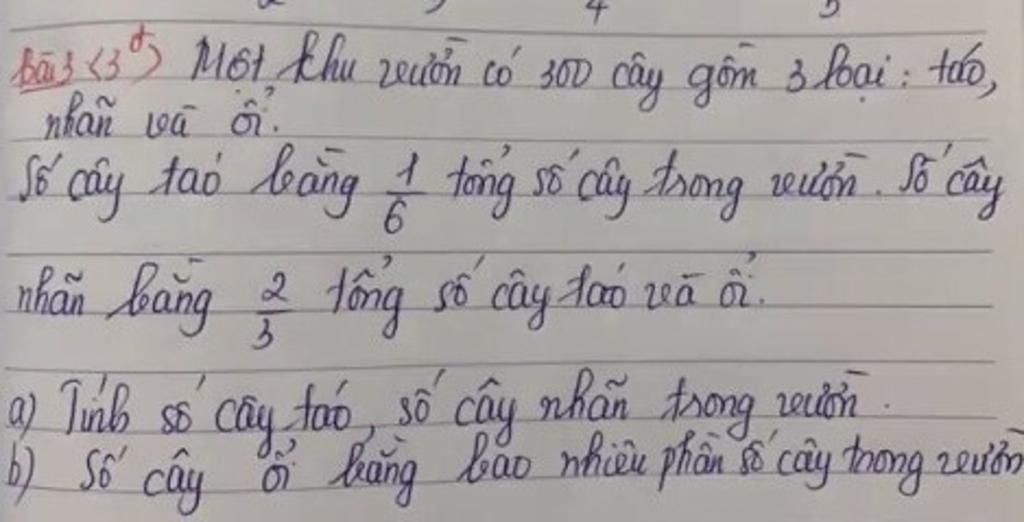 4 5
bài 3 (3đ) Một khu vườn có 300 cây gồm 3 loại: táo,
nhãn và ổi.
Số cây táo bằng 1/6 tổng số cây trong vườn. Số cây
nhãn bằng 2/3 tổng số cây táo và ổi.
a) Tính số cây táo, số cây nhãn trong vườn.
b) Số cây ổi bằng bao nhiêu phần số cây trong vườn